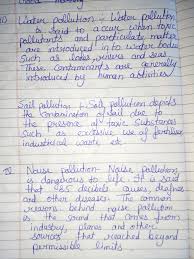 Water pollution :- Water pollution
is said to a occur when toxic
pollutants and particulate matter
are introduced in to water bodies
such as lakes, rivers and seas
These contaminants are generally
introduced by human activities
Soil pollution :- Soil pollution depicts
the contamination of soil due to
the presence of toxic substances
Such as excessive use of fertilizer
industrial waste etc
Noise pollution - Noise pollution
is dangerous to life. It is said
that 85 decibels causes, deafness
and other diseases. The common
reasons behind noise pollution
is the sound that comes from
industry, planes and other
sources that reached beyond
permissible limits